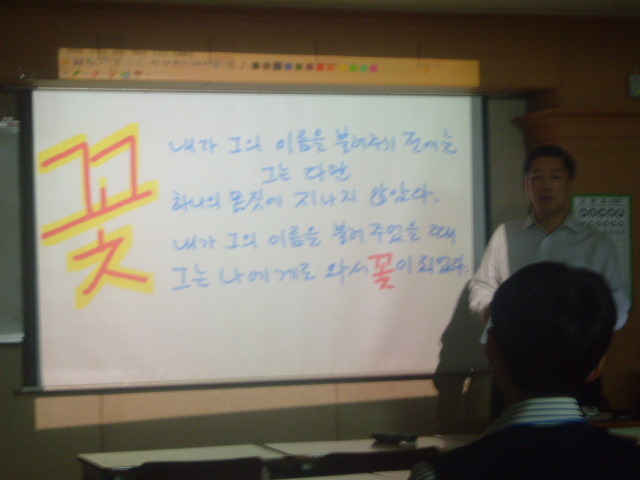 꽃
내가 그의 이름을 불러주기 전에는
그는 다만
하나의 몸짓에 지나지 않았다.
내가 그의 이름을 불러 주었을 때
그는 나에게로 와서 꽃이 되었다.